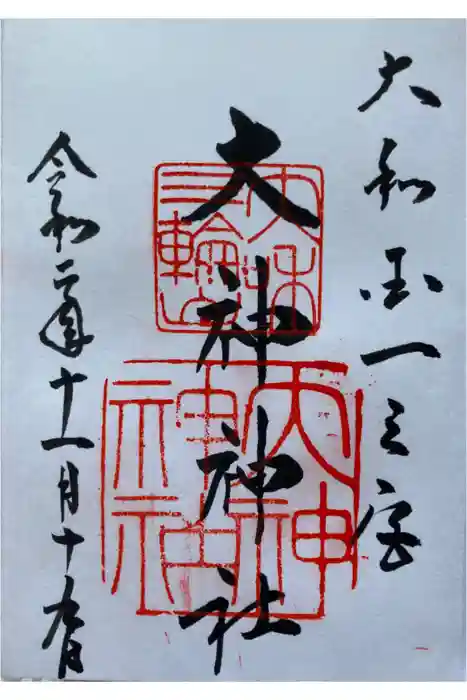 大和国一之宮
大神神社
令和二年十一月十九日
大和
三輪山